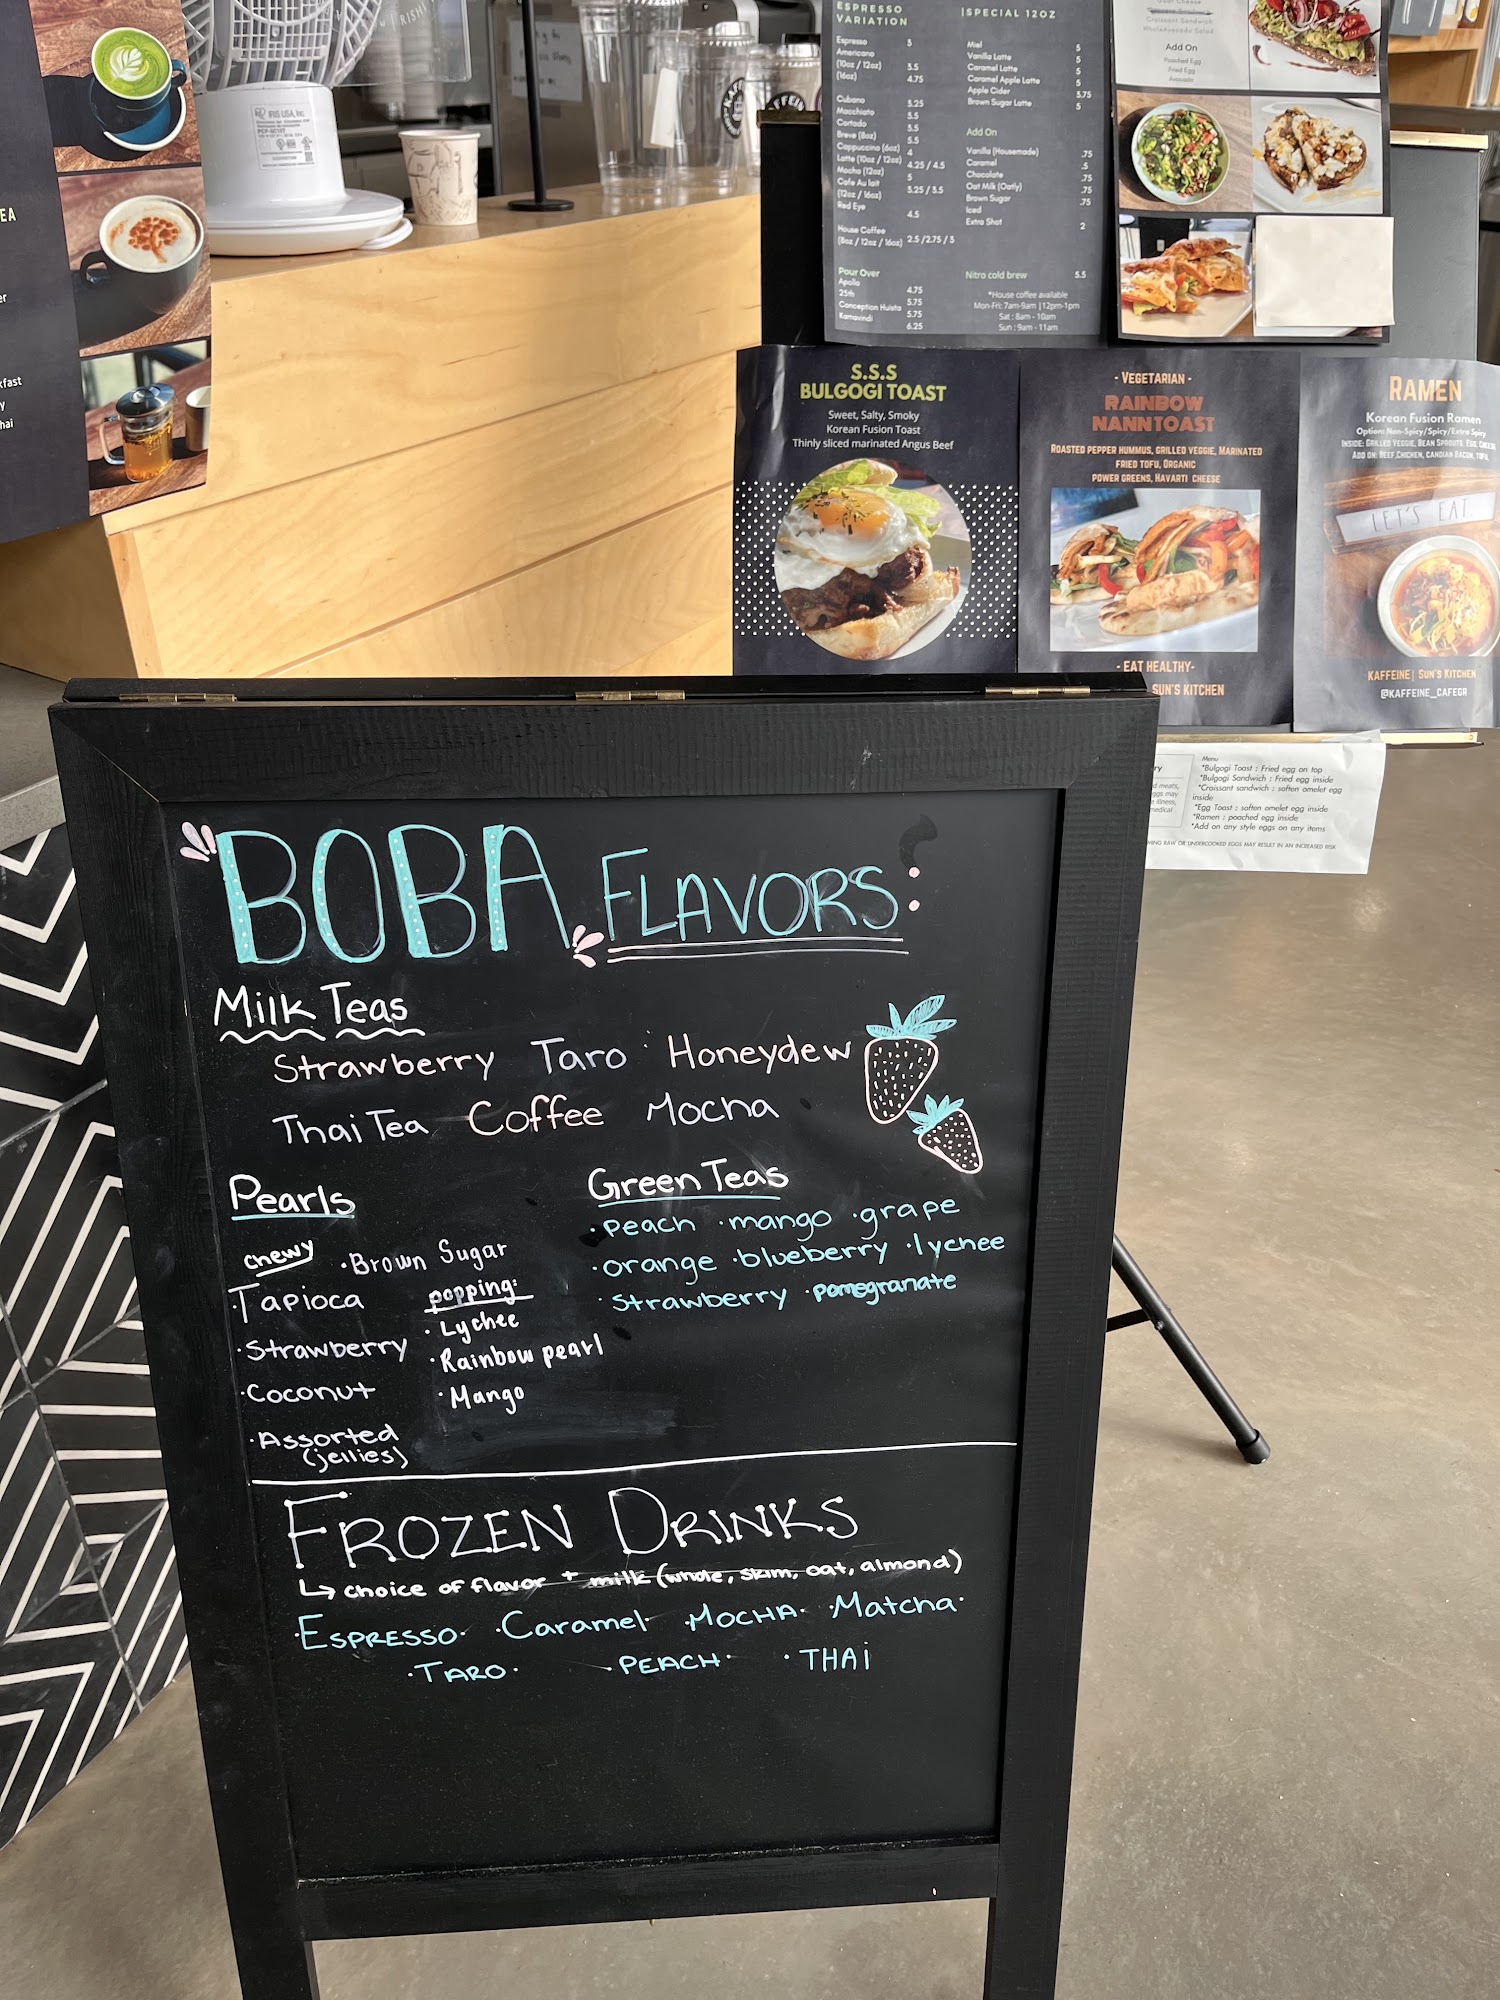 RISHI
IRIS USA, Inc.
EA
fast
y
hai
KAFFEINE
ESPRESSO
VARIATION
Espresso 5
Americano
(10oz / 12oz) 3.5
(16oz) 4.75
Cubano 5.25
Macchiato 5.5
Cortado 5.5
Breve (8oz) 5.5
Cappuccino (6oz) 4
Latte (10oz / 12oz) 4.25 / 4.5
Mocha (12oz) 5
Cafe Au lait
(12oz / 16oz) 3.25 / 3.5
Red Eye 4.5
House Coffee
(8oz / 12oz / 16oz) 2.5 /2.75 / 3
Pour Over
Apollo 4.75
25th 5.75
Conception Huista 5.75
Kamavindi 6.25
|SPECIAL 12OZ
Miel 5
Vanilla Latte 5
Caramel Latte 5
Caramel Apple Latte 5
Apple Cider 3.75
Brown Sugar Latte 5
Add On
Vanilla (Housemade) .75
Caramel .5
Chocolate .75
Oat Milk (Oatly) .75
Brown Sugar .75
Iced
Extra Shot 2
Nitro cold brew 5.5
*House coffee available
Mon-Fri: 7am-9am |12pm-1pm
Sat : 8am - 10am
Sun : 9am - 11am
Croissant Sandwich
Add On
Poached Egg
Fried Egg
Avocado
S.S.S
BULGOGI TOAST
Sweet, Salty, Smoky
Korean Fusion Toast
Thinly sliced marinated Angus Beef
- VEGETARIAN -
RAINBOW
NANNTOAST
ROASTED PEPPER HUMMUS, GRILLED VEGGIE, MARINATED
FRIED TOFU, ORGANIC
POWER GREENS, HAVARTI CHEESE
- EAT HEALTHY-
SUN'S KITCHEN
RAMEN
Korean Fusion Ramen
Option: Non-Spicy/Spicy/Extra Spicy
INSIDE: GRILLED VEGGIE, BEAN SPROUTS, EGG, CHEESE
ADD ON: BEEF,CHICHEN, CANDIAN BACON, TOFU,
LET'S EAT.
KAFFEINE| SUN'S KITCHEN
@KAFFEINE_CAFEGR
ry
d meats,
ggs may
e illness,
medical
Menu
*Bulgogi Toast : Fried egg on top
*Bulgogi Sandwich : Fried egg inside
*Croissant sandwich : soften omelet egg
inside
*Egg Toast : soften omelet egg inside
*Ramen : poached egg inside
*Add on any style eggs on any items
MING RAW OR UNDERCOOKED EGGS MAY RESULT IN AN INCREASED RISK
BOBA FLAVORS:
Milk Teas
Strawberry Taro Honeydew
Thai Tea Coffee Mocha
Pearls
chewy
·Brown Sugar
·Tapioca
·Strawberry
·Coconut
·Assorted
(jellies)
popping:
·Lychee
·Rainbow pearl
·Mango
Green Teas
·peach ·mango ·grape
·orange ·blueberry ·lychee
·strawberry ·pomegranate
FROZEN DRINKS
↳ choice of flavor + milk (whole, skim, oat, almond)
·ESPRESSO· ·Caramel· ·MOCHA· ·Matcha·
·TARO· ·PEACH· ·THAi